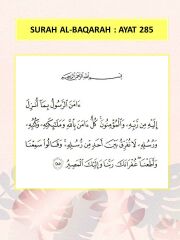 SURAH AL-BAQARAH : AYAT 285
بِسْمِ اللَّهِ الرَّحْمَٰنِ الرَّحِيمِ
ءَامَنَ الرَّسُولُ بِمَا أُنزِلَ
إِلَيْهِ مِن رَّبِّهِ وَالْمُؤْمِنُونَ كُلٌّ ءَامَنَ بِاللَّهِ وَمَلَٰئِكَتِهِ وَكُتُبِهِ
وَرُسُلِهِ لَا نُفَرِّقُ بَيْنَ أَحَدٍ مِّن رُّسُلِهِ وَقَالُوا سَمِعْنَا
وَأَطَعْنَا غُفْرَانَكَ رَبَّنَا وَإِلَيْكَ الْمَصِيرُ ٢٨٥